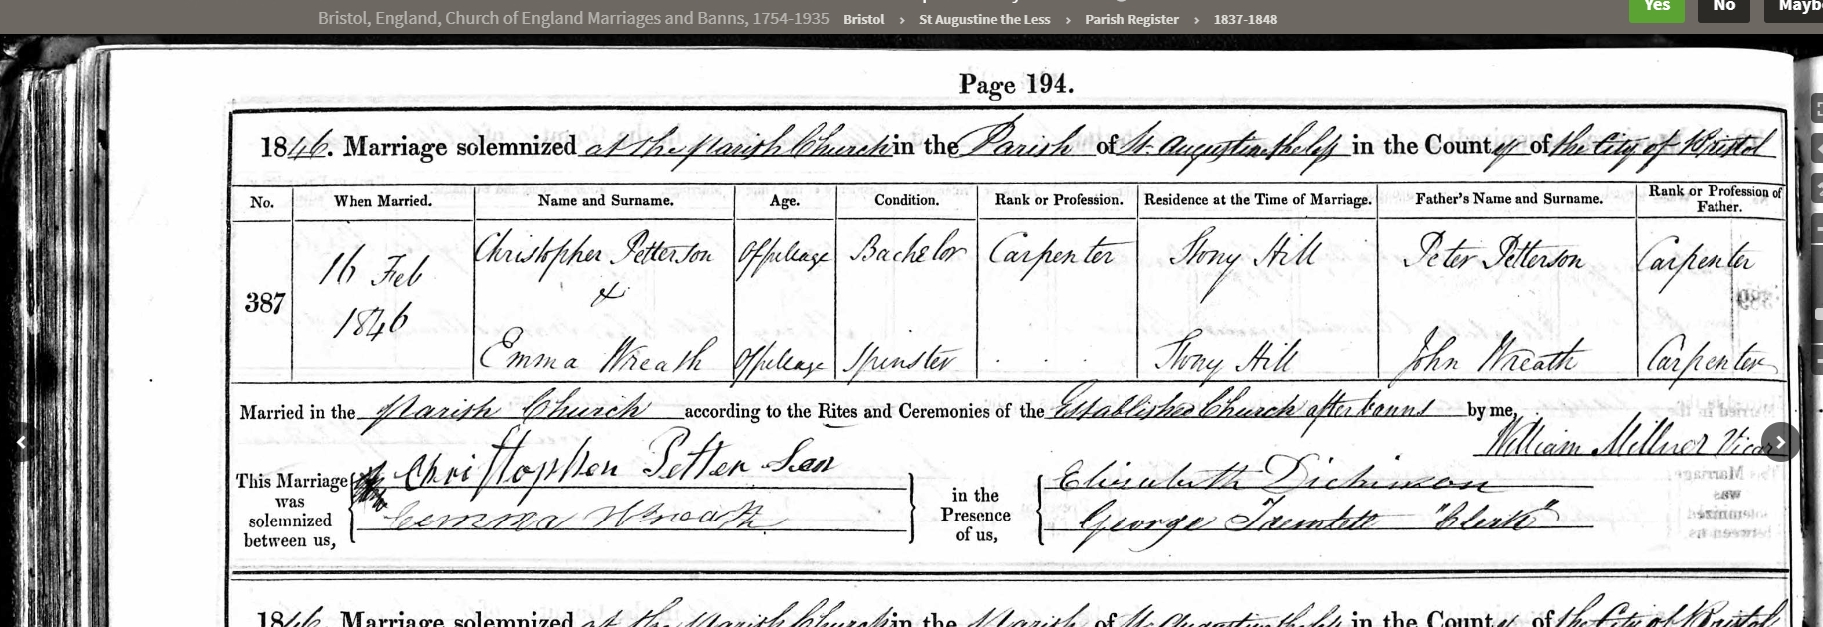 Bristol, England, Church of England Marriages and Banns, 1754-1935 Bristol > St Augustine the Less > Parish Register > 1837-1848
Yes No Mayb
Page 194.
1846. Marriage solemnized at the parish Church in the Parish of St. Augustine the less in the County of the City of Bristol
No. When Married. Name and Surname. Age. Condition. Rank or Profession. Residence at the Time of Marriage. Father's Name and Surname. Rank or Profession of Father.
387
16 Feb
1846
Christopher Petterson Of full age Bachelor Carpenter Stony Hill Peter Petterson Carpenter
&
Emma Wreath Of full age Spinster . . . Stony Hill John Wreath Carpenter
Married in the Parish Church according to the Rites and Ceremonies of the Established Church after banns by me,
William Millner Vicar
This Marriage was solemnized between us,
Christophen Petter Son
Emma Wreath
in the Presence of us,
Elizabeth Dickinson
George Tremlett "Clerk"
1846. Marriage solemnized at the parish Church in the Parish of St. Augustine the less in the County of the City of Bristol